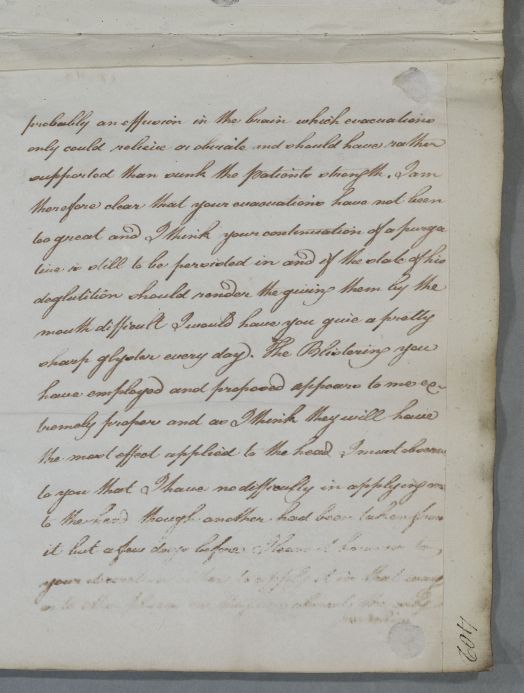 probably an effusion in the brain which evacuations
only could relieve or obviate and should have rather
supported than sunk the Patients strength. I am
therefore clear that your evacuations have not been
too great and I think your continuation of a purga
tive is still to be persisted in and if the state of his
deglutition should render the giving them by the
mouth difficult I would have you give a pretty
sharp glyster every day. The Blistering you
have employed and proposed appears to me ex-
tremely proper and as I think they will have
the most effect applied to the head I must observe
to you that I have no difficulty in applying one
to the head though another had been taken from
it but a few days before. I leave it however to
your to apply it in that
or to other
407